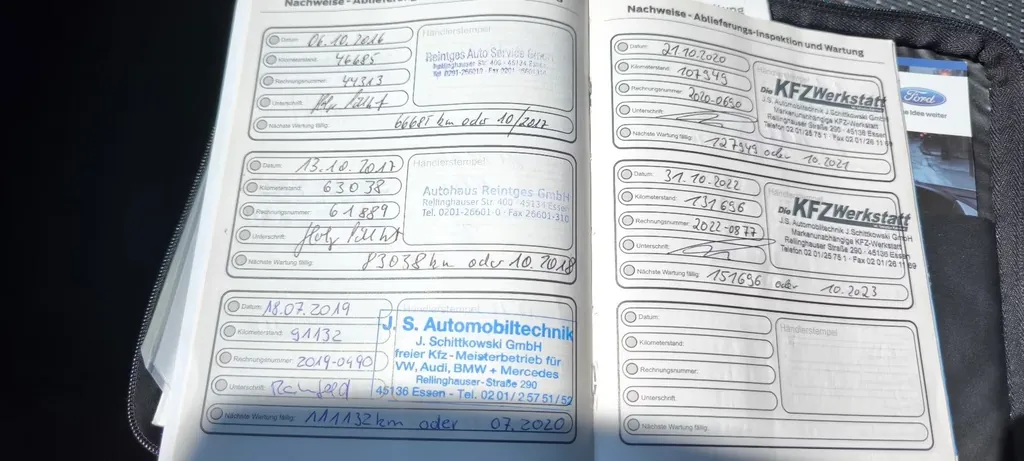 Nachweise - Ablieferungs-
Datum: 06.10.2016
Kilometerstand: 46685
Rechnungsnummer: 44313
Unterschrift:
Nächste Wartung fällig: 66685 km oder 10/2017
Händlerstempel
Reintges Auto Service GmbH
Rellinghauser Str. 400 - 45134 Essen
Datum: 13.10.2017
Kilometerstand: 63038
Rechnungsnummer: 61889
Unterschrift:
Nächste Wartung fällig: 83038 km oder 10.2018
Händlerstempel
Autohaus Reintges GmbH
Rellinghauser Str. 400 · 45134 Essen
Tel. 0201-26601-0 · Fax 26601-310
Datum: 18.07.2019
Kilometerstand: 91132
Rechnungsnummer: 2019-0490
Unterschrift:
Nächste Wartung fällig: 111132km oder 07.2020
Händlerstempel
J. S. Automobiltechnik
J. Schittkowski GmbH
freier Kfz-Meisterbetrieb für
VW, Audi, BMW + Mercedes
Rellinghauser-Straße 290
45136 Essen - Tel. 02 01 / 2 57 51 / 52
Nachweise - Ablieferungs-Inspektion und Wartung
Datum: 21.10.2020
Kilometerstand: 107949
Rechnungsnummer: 2020-0650
Unterschrift:
Nächste Wartung fällig: 127949 oder 10.2021
Die KFZWerkstatt
J.S. Automobiltechnik J.Schittkowski GmbH
Markenunabhängige KFZ-Werkstatt
Rellinghauser Straße 290 - 45136 Essen
Telefon 02 01/25 75 1 · Fax 02 01/26 11
Datum: 31.10.2022
Kilometerstand: 131696
Rechnungsnummer: 2022-0877
Unterschrift:
Nächste Wartung fällig: 151696 oder 10.2023
Die KFZWerkstatt
J.S. Automobiltechnik J.Schittkowski GmbH
Markenunabhängige KFZ-Werkstatt
Rellinghauser Straße 290 - 45136 Essen
Telefon 02 01/25 75 1 · Fax 02 01/26 11 69
Datum:
Kilometerstand:
Rechnungsnummer:
Unterschrift:
Nächste Wartung fällig:
Händlerstempel
Ford